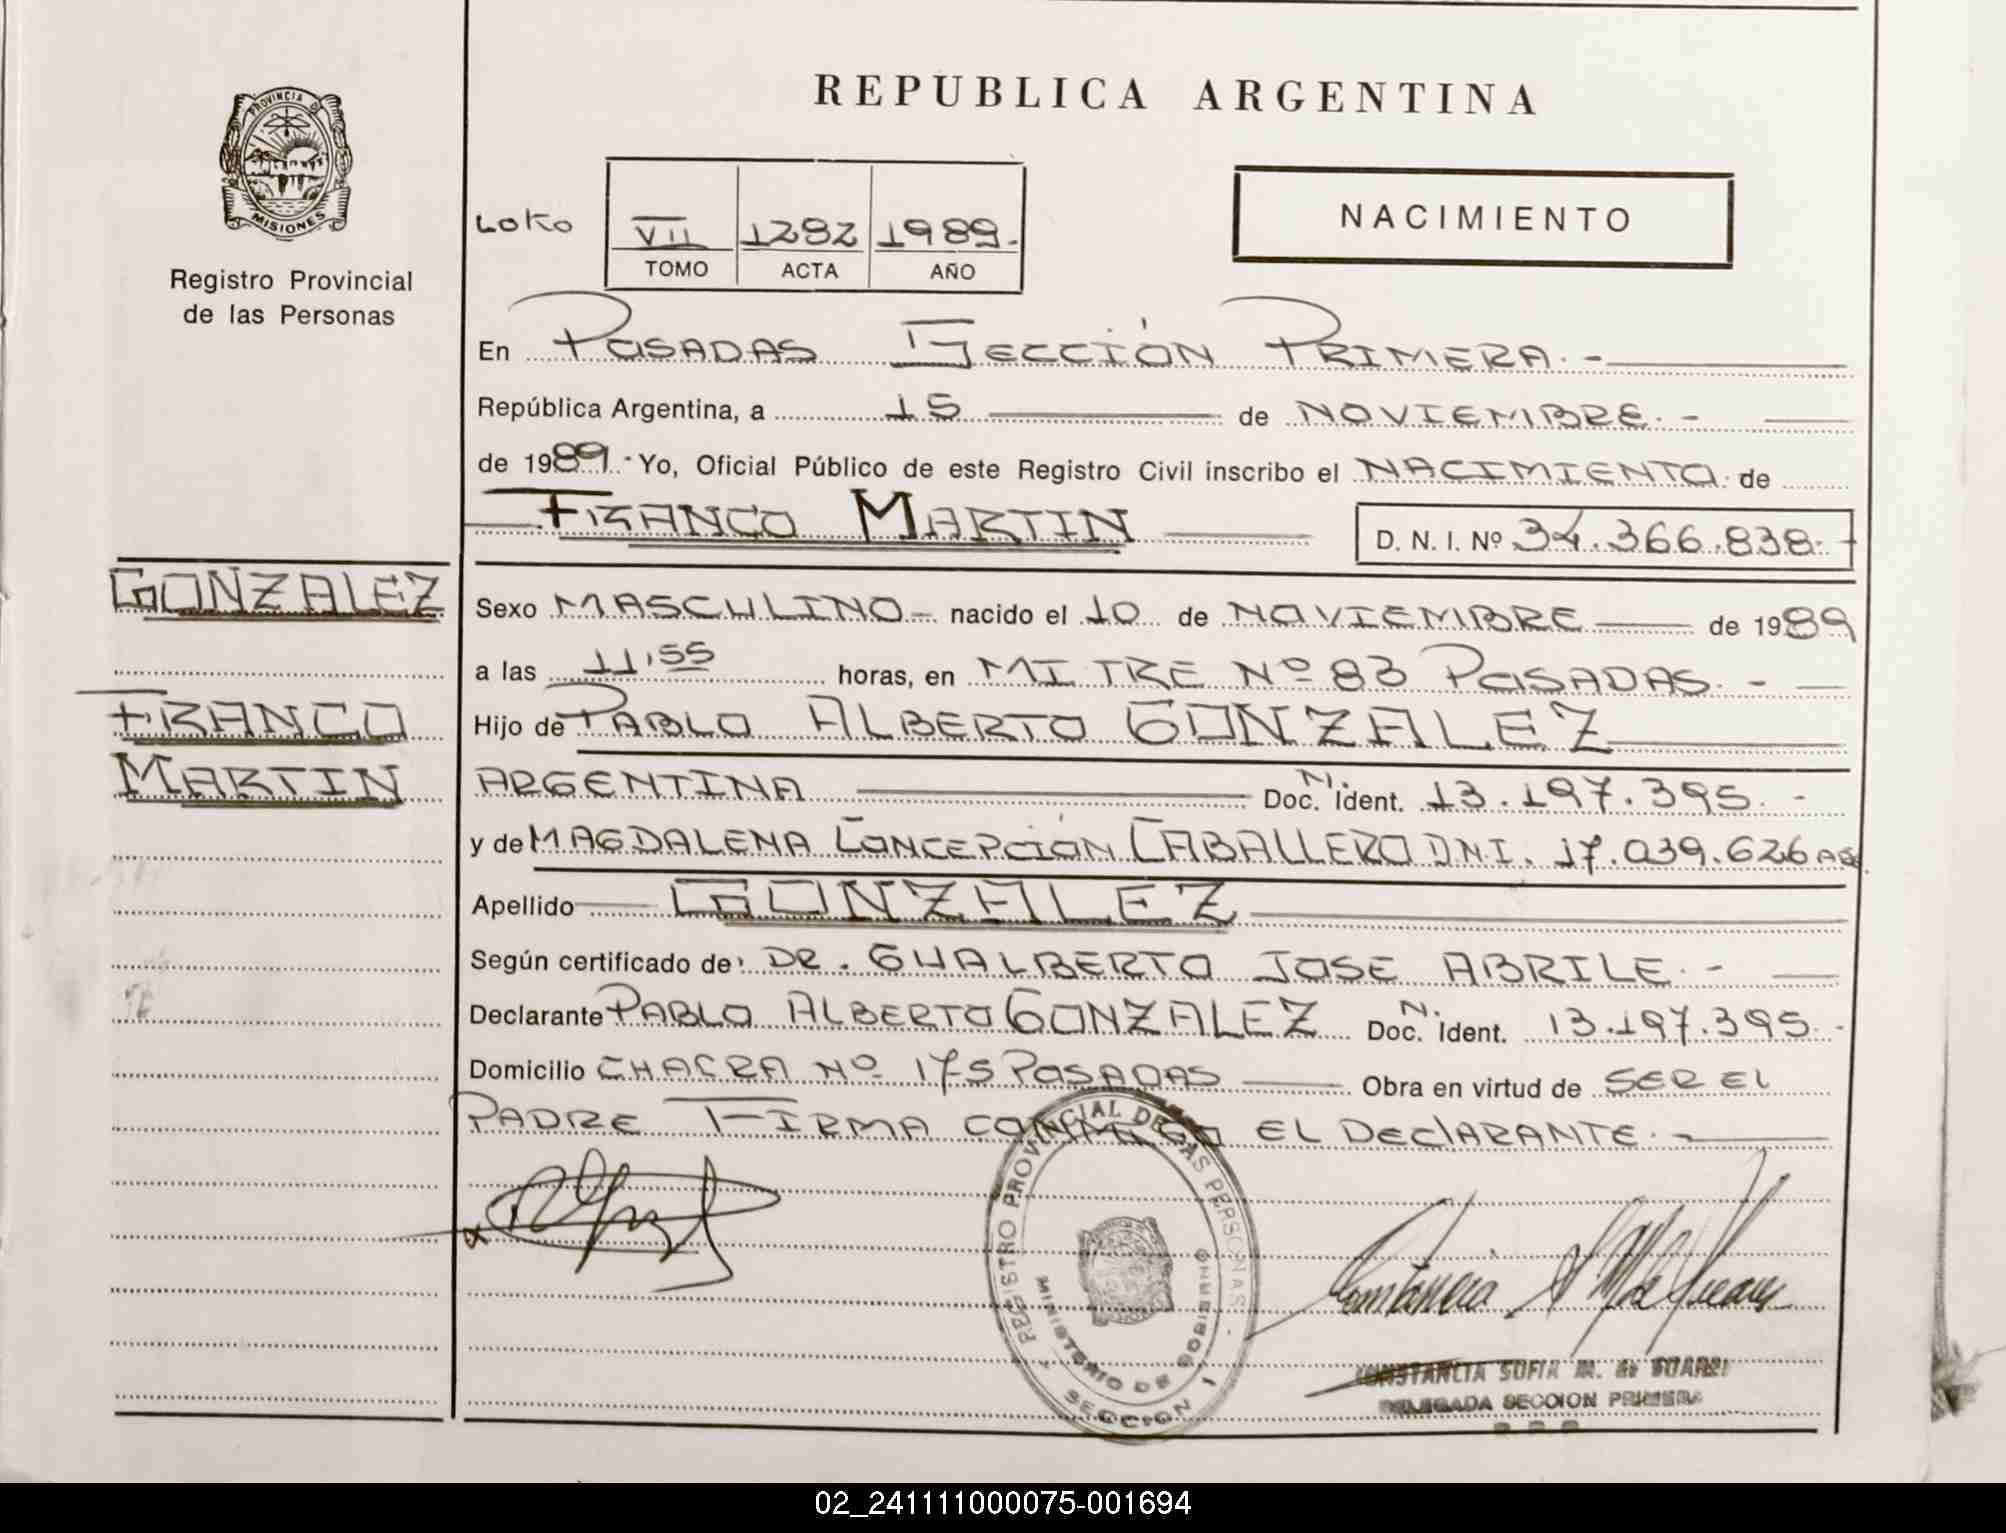 REPUBLICA ARGENTINA
PROVINCIA DE
MISIONES
Registro Provincial
de las Personas
LOKO
VII 1282 1989.-
TOMO ACTA AÑO
NACIMIENTO
En POSADAS SECCIÓN PRIMERA.-
República Argentina, a 15 de NOVIEMBRE.-
de 1989.- Yo, Oficial Público de este Registro Civil inscribo el NACIMIENTO. de
FRANCO MARTIN
D. N. I. Nº 34.366.838.-
GONZALEZ
FRANCO
MARTIN
Sexo MASCULINO- nacido el 10 de NOVIEMBRE de 1989
a las 11,55 horas, en MITRE Nº 83 POSADAS.-
Hijo de PABLO ALBERTO GONZALEZ
ARGENTINA Doc. N. Ident. 13.197.395.-
y de MAGDALENA CONCEPCIÓN CABALLERO D.N.I. 17.039.626
Apellido GONZALEZ
Según certificado de: DR. GUALBERTO JOSE ABRILE.-
Declarante PABLO ALBERTO GONZALEZ Doc. N. Ident. 13.197.395.-
Domicilio CHACRA Nº 175 POSADAS Obra en virtud de SER EL
PADRE FIRMA CONMIGO EL DECLARANTE.-
REGISTRO PROVINCIAL DE LAS PERSONAS
MINISTERIO DE GOBIERNO
SECCION 1
CONSTANCIA SOFIA M. de
DELEGADA SECCION PRIMERA
02_241111000075-001694